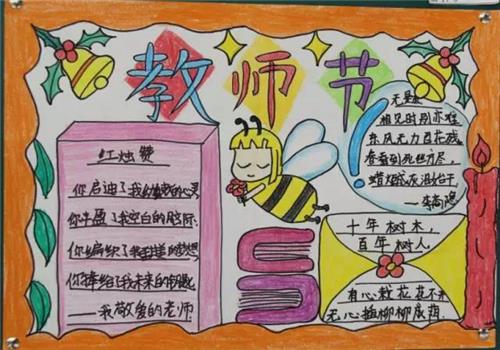 教师节
红烛赞
你启迪了我幼稚的心灵
你丰盈了我空白的脑际
你编织了我的梦想
你择给了我未来的
——我敬爱的老师
无题
相见时别亦难
东风无力百花残
春蚕到死丝方尽,
蜡炬成灰泪始干
——李商隐
十年树木,
百年树人
有心栽花花不开
无心插柳柳成荫